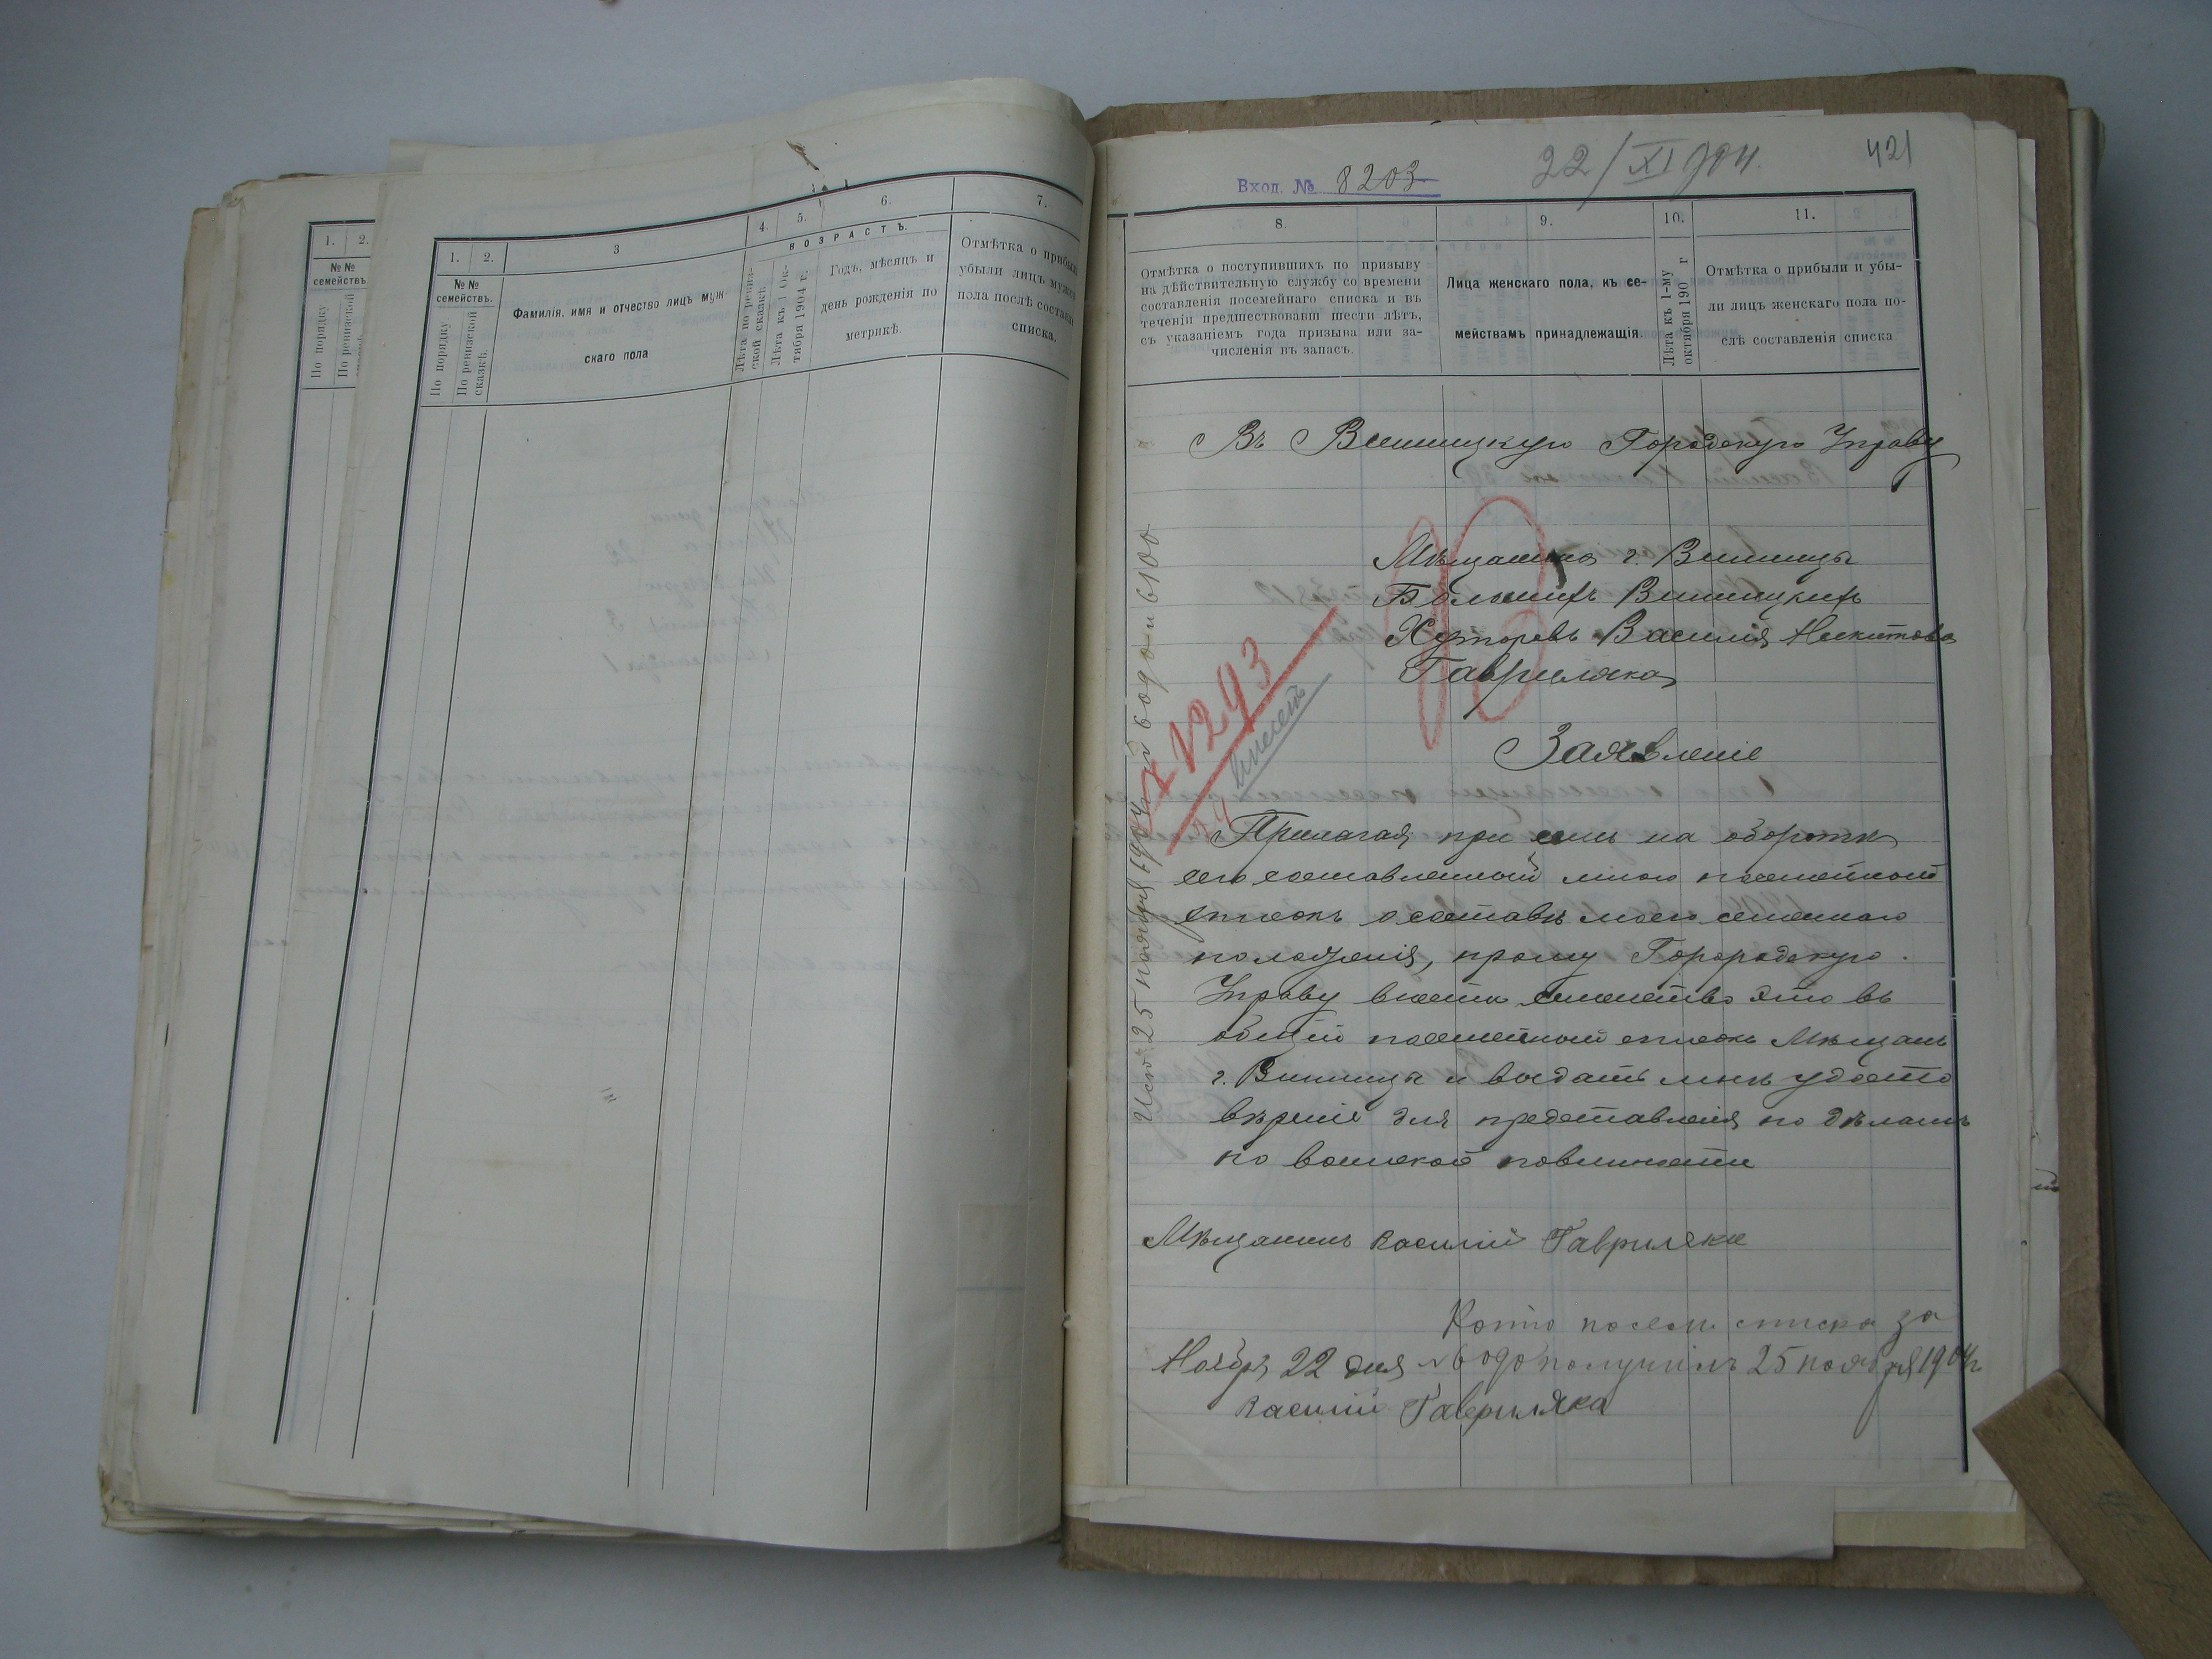 1.
2.
№№
семействъ
По порядку
По ревизской
1.
2.
3
4.
5.
6.
7.
№№
семействъ.
По порядку
По ревизской
сказкѣ.
Фамилія, имя и отчество лицъ муж-
скаго пола
ВОЗРАСТЪ.
Лѣта по ревиз-
ской сказкѣ.
Лѣта къ 1 Ок-
тября 1904 г.
Годъ, мѣсяцъ и
день рожденія по
метрикѣ.
Отмѣтка о прибыли
убыли лицъ мужс
пола послѣ составл
списка.
Вход. № 8203
22/XI 904.
421
8.
9.
10.
11.
Отмѣтка о поступившихъ по призыву
на дѣйствительную службу со времени
составленія посемейнаго списка и въ
теченіи предшествовавш шести лѣтъ,
съ указаніемъ года призыва или за-
численія въ запасъ.
Лица женскаго пола, къ се-
мействамъ принадлежащія.
Лѣта къ 1-му
октября 190 г
Отмѣтка о прибыли и убы-
ли лицъ женскаго пола по-
слѣ составленія списка
Въ Винницкую Городскую Управу
Мѣщанина г. Винницы
Большихъ Винницкихъ
Хуторовъ Василія Никитова
Гавриляка
Заявленіе
№ 1293
внесенъ
Прилагая при семъ на оборотѣ
сего составленный мною посемейный
списокъ о составѣ моего семейнаго
положенія, прошу Горородскую
Управу внести семейство это въ
общій посемейный списокъ Мѣщанъ
г. Винницы и выдать мнѣ удосто
вѣреніе для представленія по дѣламъ
по воинской повинности
Мѣщанинъ Василій Гавриляка
Копію посем. списка за
Ноября 22 дня № 6090 получилъ 25 ноября 1904 г
Василій Гавриляка
Исп. 25 ноября 1904 г. № 6090 и 6100